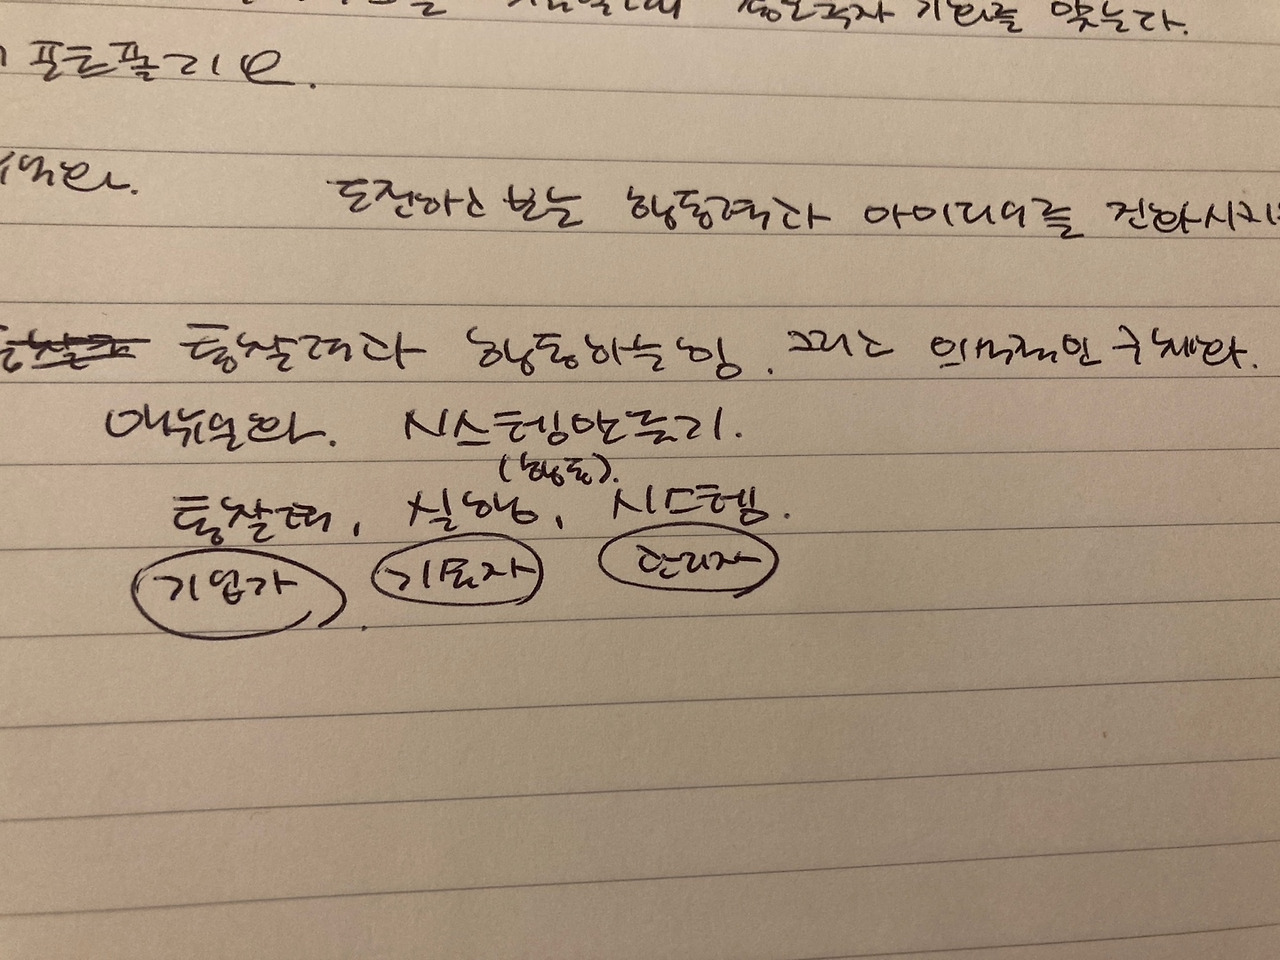 기회를 맞는다.
포트폴리오.
도전하고 보는 행동력과 아이디어를 진화시키
통찰력과 행동하는 힘. 그리고 의식적인 구체화.
매뉴얼화. 시스템만들기.
(행동).
통찰력, 실행, 시스템.
기업가 기술자 관리자